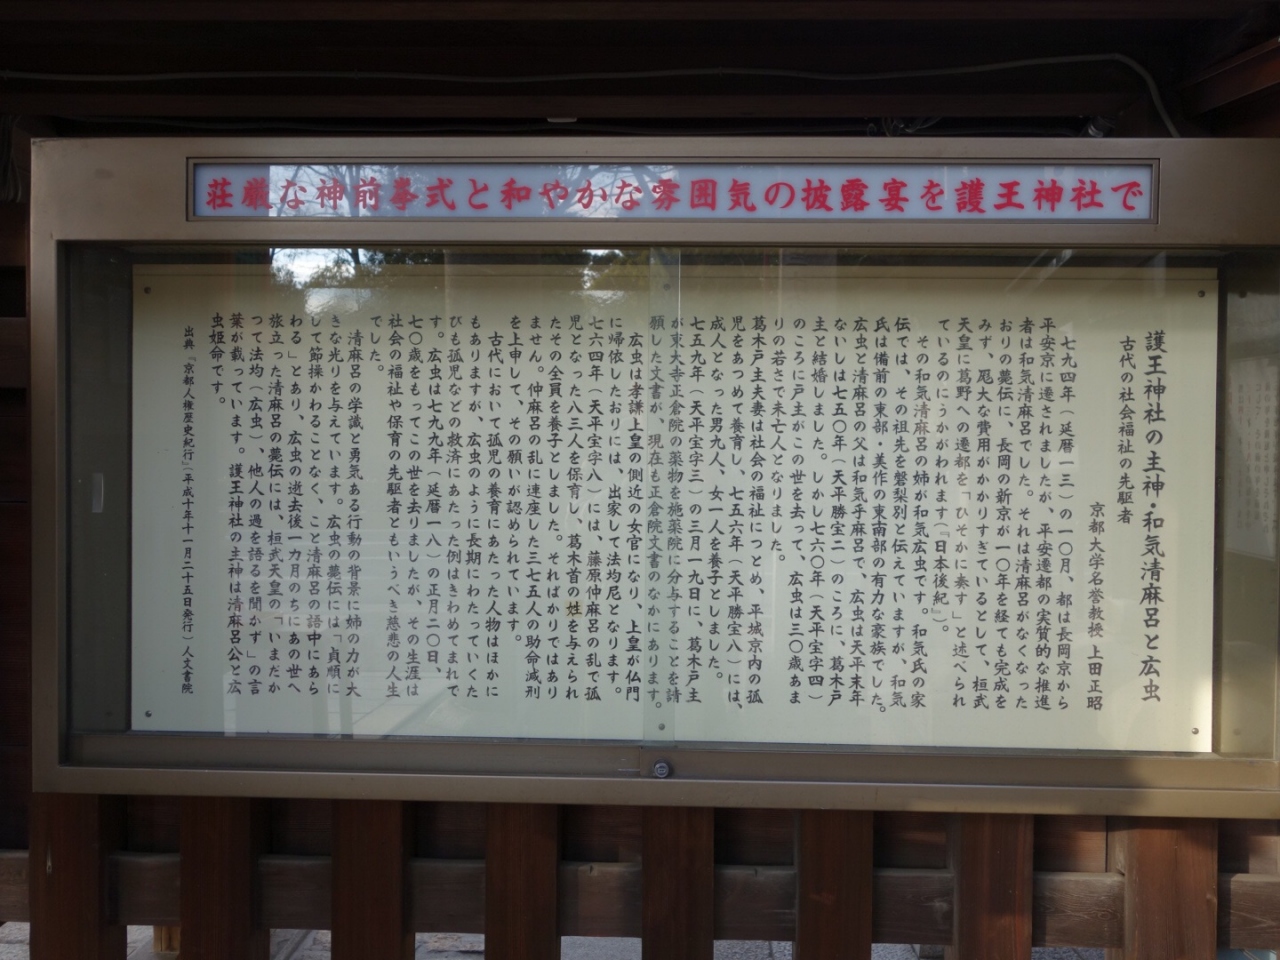 荘厳な神前挙式と和やかな雰囲気の披露宴を護王神社で
護王神社の主神・和気清麻呂と広虫
古代の社会福祉の先駆者
京都大学名誉教授 上田正昭
七九四年（延暦一三）の一〇月、都は長岡京から
平安京に遷されましたが、平安遷都の実質的な推進
者は和気清麻呂でした。それは清麻呂がなくなった
おりの薨伝に、長岡の新京が一〇年を経ても完成を
みず、厖大な費用がかかりすぎているとして、桓武
天皇に葛野への遷都を「ひそかに奏す」と述べられ
ているのにうかがわれます（『日本後紀』）。
その和気清麻呂の姉が和気広虫です。和気氏の家
伝では、その祖先を磐梨別と伝えていますが、和気
氏は備前の東部・美作の東南部の有力な豪族でした。
広虫と清麻呂の父は和気乎麻呂で、広虫は天平末年
ないしは七五〇年（天平勝宝二）のころに、葛木戸
主と結婚しました。しかし七六〇年（天平宝字四）
のころに戸主がこの世を去って、広虫は三〇歳あま
りの若さで未亡人となりました。
葛木戸主夫妻は社会の福祉につとめ、平城京内の孤
児をあつめて養育し、七五六年（天平勝宝八）には、
成人となった男九人、女一人を養子としました。
七五九年（天平宝字三）の三月一九日に、葛木戸主
が東大寺正倉院の薬物を施薬院に分与することを請
願した文書が、現在も正倉院文書のなかにあります。
広虫は孝謙上皇の側近の女官になり、上皇が仏門
に帰依したおりには、出家して法均尼となります。
七六四年（天平宝字八）には、藤原仲麻呂の乱で孤
児となった八三人を保育し、葛木首の姓を与えられ
たその全員を養子としました。そればかりではあり
ません。仲麻呂の乱に連座した三七五人の助命減刑
を上申して、その願いが認められています。
古代において孤児の養育にあたった人物はほかに
もありますが、広虫のように長期にわたっていくた
びも孤児などの救済にあたった例はきわめてまれで
す。広虫は七九九年（延暦一八）の正月二〇日、
七〇歳をもってこの世を去りましたが、その生涯は
社会の福祉や保育の先駆者ともいうべき慈悲の人生
でした。
清麻呂の学識と勇気ある行動の背景に姉の力が大
きな光りを与えています。広虫の薨伝には「貞順に
して節操かわることなく、こと清麻呂の語中にあら
わる」とあり、広虫の逝去後一カ月のちにあの世へ
旅立った清麻呂の薨伝には、桓武天皇の「いまだか
つて法均（広虫）、他人の過を語るを聞かず」の言
葉が載っています。護王神社の主神は清麻呂公と広
虫姫命です。
出典『京都人権歴史紀行』（平成十年十一月二十五日発行）人文書院